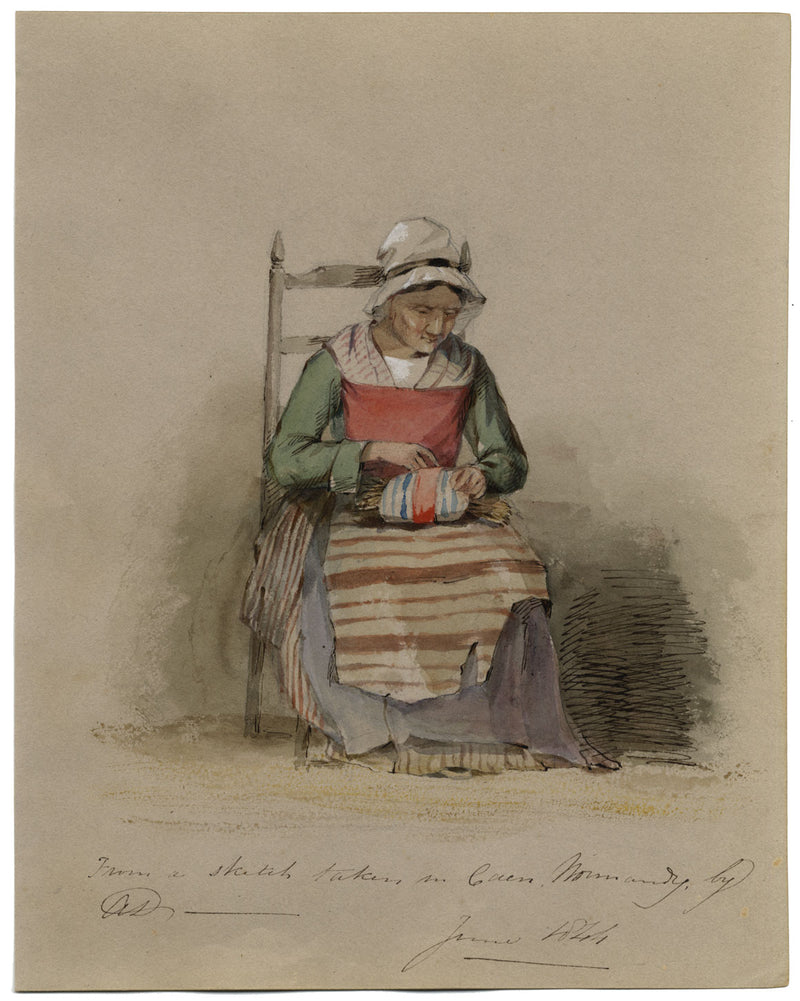 From a sketch taken in Caen, Normandy, by
AD
June 1844